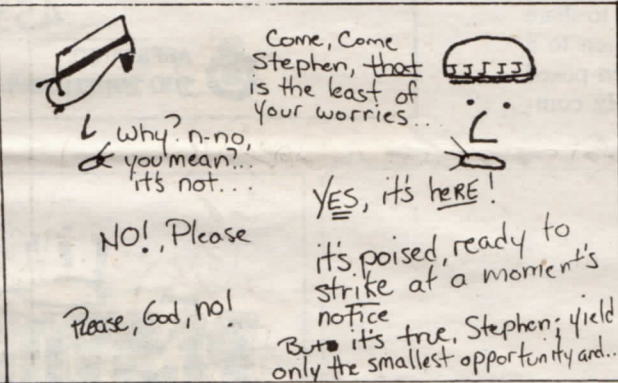 Come, Come
Stephen, that
is the least of
your worries...
Why? n-no,
you mean?...
it's not...
YES, it's hERE!
NO!, Please
it's poised, ready to
strike at a moment's
notice
Please, God, no!
But it's true, Stephen; yield
only the smallest opportunity and...